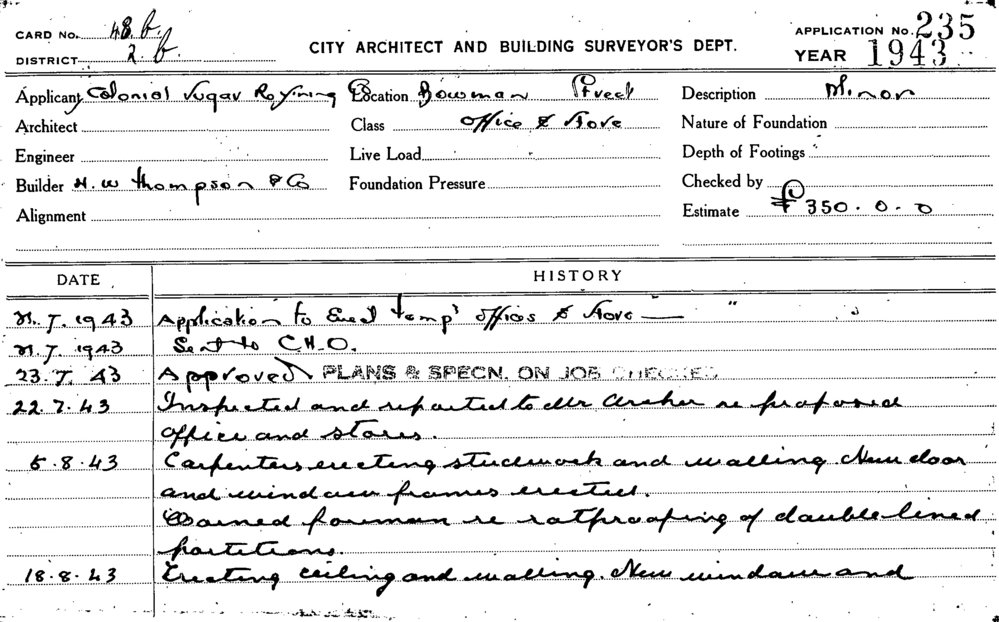 CARD No. 48.b. APPLICATION No. 235
DISTRICT 2.b. CITY ARCHITECT AND BUILDING SURVEYOR'S DEPT. YEAR 1943
Applicant Colonial Sugar Refining Co Location Bowman Street Description Minor
Architect Class Office & Store Nature of Foundation
Engineer Live Load Depth of Footings
Builder H. W Thompson & Co Foundation Pressure Checked by
Alignment Estimate £350.0.0
DATE HISTORY
7. 1943 Application to Erect temp' offices & Store — "
7. 1943 Sent to C.H.O.
23.7.43 Approved PLANS & SPECN. ON JOB CHECKED
22.7.43 Inspected and reported to Mr Archer re proposed
office and stores.
5.8.43 Carpenters erecting studwork and walling. New door
and window frames erected.
Warned foreman re ratproofing of double lined
partitions.
18.8.43 Erecting ceiling and walling. New window and